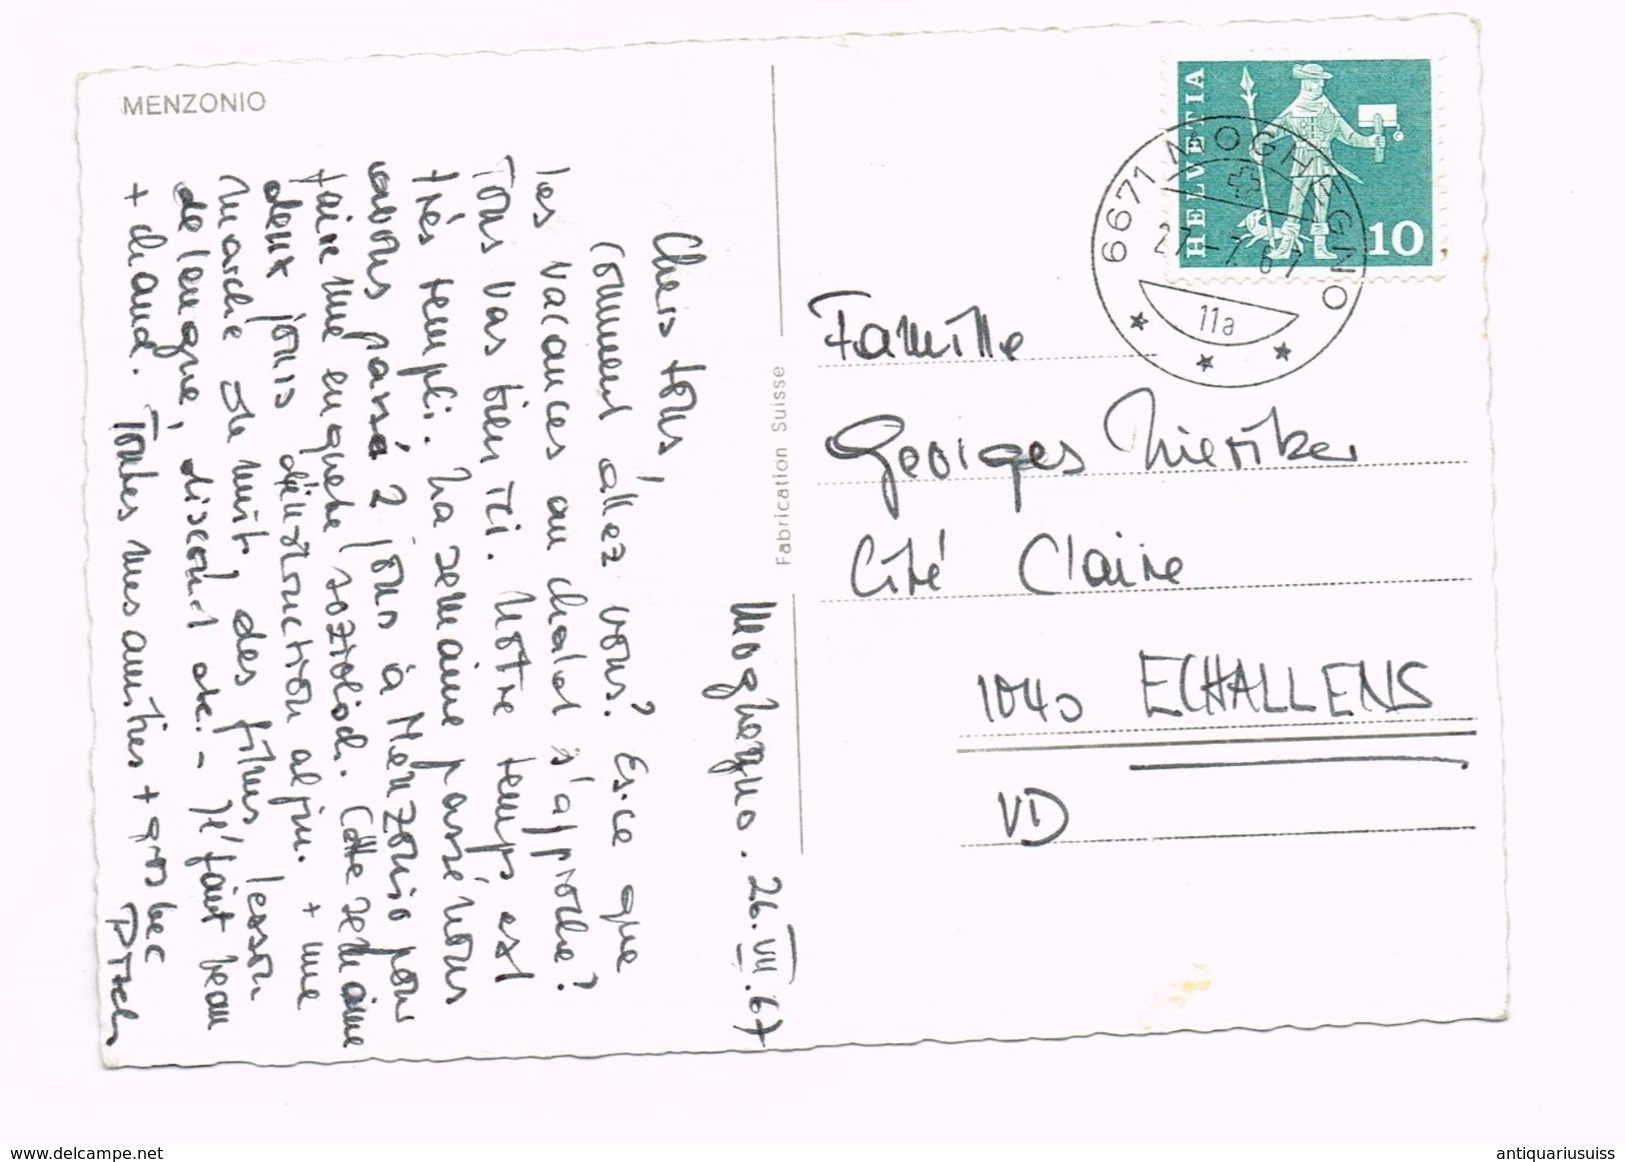 MENZONIO
Moghegno. 26.VII.67
Chers tous,
Comment allez vous? Es-ce que
les vacances au chalet s'approche?
Tous vas bien ici. Notre temps est
très rempli. La semaine passé nous
avons passé 2 jours à Menzonio pour
faire une enquete soziolog. Cette semaine
deux jours d'instruction alpin. + une
marche de nuit, des films, lesson
de langue, discont etc. - Il fait beau
+ chaud. Toutes mes amities + gros bec
Fabrication Suisse
HELVETIA
10
6671 MOGHEGNO
27.-7.67
11a
Famille
Georges
Cité Claire
1040 ECHALLENS
VD
www.delcampe.net
antiquariusuiss